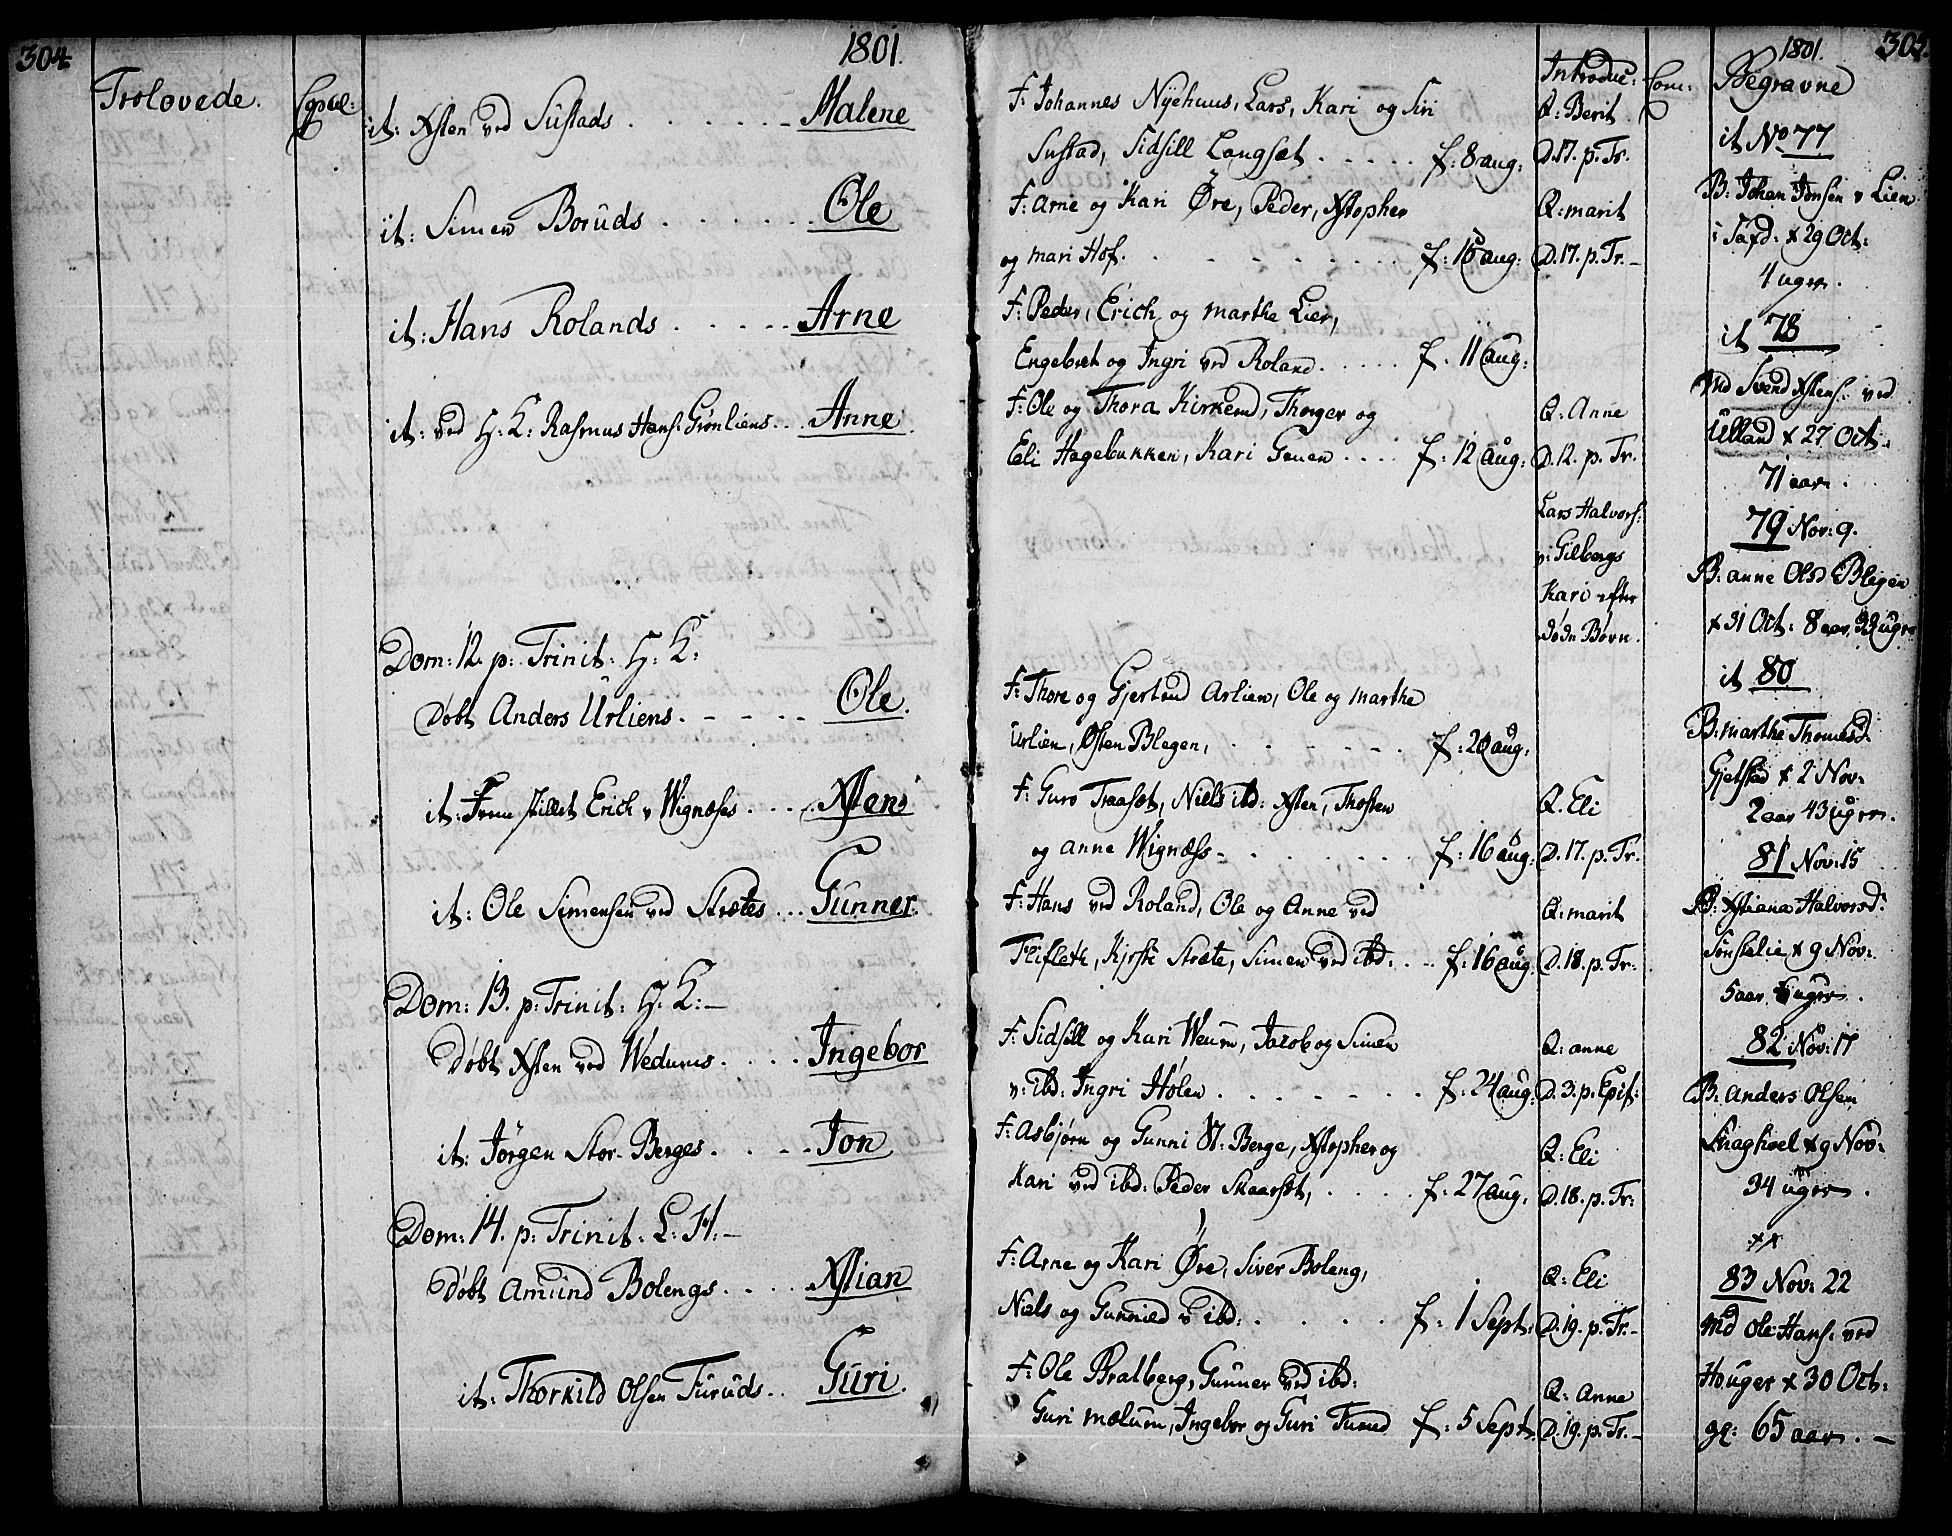 304
1801.
Trolovede.
Copul:
it: Xsten ved Sustads . . . . . . Malene
it: Simen Boruds . . . . . . Ole
it: Hans Rolands . . . . . Arne
it: ved H: K: Rasmus Hans: Grønliens . . Anne
Dom: 12. p: Trinit: H: K:
Døbt Anders Urliens . - - - - Ole.
it: Frem stillet Erich v Wignæses . . . . Xsten
it: Ole Simensen ved Strætes . . . Gunner.
Dom: 13. p: Trinit: H: K: —
Døbt Xsten ved Wedums . . . . Ingebor
it: Jörgen Stor-Berges . . . . Jon
Dom: 14. p: Trinit: L: H: —
Døbt Amund Bolengs . . . . Xstian
it: Thorkild Olsen Furuds . . Guri.
F: Johannes Nyehuus, Lars, Kari og Siri
Sustad, Sidsill Langsæt . . . . . f: 8 aug:
F: Arne og Kari Øre, Peder, Xstopher
og mari Hof. . . . . . . . . f: 16 aug:
F: Peder, Erich og marthe Lier,
Engebret og Ingri ved Roland . . . . . f. 11 aug:
F: Ole og Thora Kirkerud, Thorger og
Eli Hagebakken, Kari Gouen . . . . f: 12 aug:
F: Thore og Gjertrud Arlien, Ole og marthe
Urlien, Østen Blegen, . . . . . . . f: 20 aug:
F: Guro Traasæt, Niels ibd: Xsten, Thosten
og anne Wignæss - . . . . . . f: 16 aug:
F: Hans ved Roland, Ole og Anne ved
Kjrsti Stræte, Simen ved ibd: . . - f: 16 aug
F: Sidsill og Kari Weum, Jacob og Simen
v: ibd: Ingri Hølen . . . . . . . f: 24 aug:
F: Asbjørn og Gunni St: Berge, Xstopher og
Kari ved ibd: Peder Skaarsæt, . . . . f: 27 aug:
F: Arne og Kari Øre, Siver Boleng,
Niels og Gunnild v ibd: . . . . . f: 1 Sept:
F: Ole Bratberg, Gunner ved ibd:
Guri mælum, Ingebor og Guri Furud f: 5 Sept
Introduc:
Q: Berit
D. 17. p. Tr.
Q: marit
D. 17. p. Tr. –
Q: Anne
D. 12. p. Tr.
Lars Halvors:
v: Gilbergs
Kari efter
døde Børn.
Q. Eli
D. 17. p. Tr.
Q: marit
D. 18. p. Tr:
Q: anne
D. 3. p: Epif:
Q: Eli
D. 18. p. Tr:
Q: Eli
D. 19. p. Tr. -
Q: Anne
D. 19. p. Tr. -
Com:
1801.
305.
Begravne
it No 77
B: Johan Jonsen v Lien
x 29 Oct:
4 uger.
it 78
md Svend Xstens: ved
Ulland x 27 Oct.
71 aar.
79 Nov: 9.
B: anne Olsd Blegen
x 31 Oct: 8 aar 32 uger
it 80
B: marthe Thomesd
Gjelstad x 2 Nov:
2 aar 43 uger.
81 Nov: 15
B: Xstiana Halvorsd:
Sønstelie x 9 Nov:
5 aar uger.
82 Nov: 17
B: Anders Olsen
Kraghoel x 9 Nov:
34 uger.
xx
83 Nov: 22
md Ole Hans: ved
Houger x 30 Oct:
gl: 65 aar. —